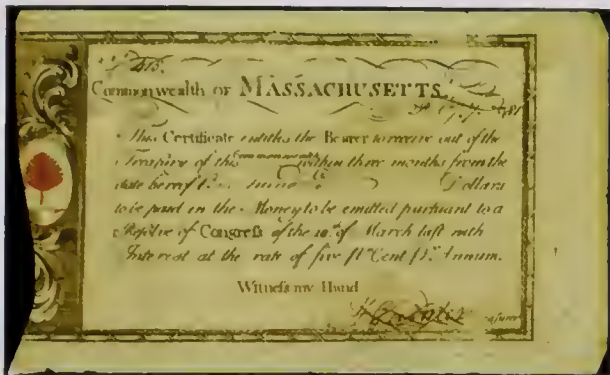 N.º 415.
Commonwealth OF MASSACHUSETTS.
This Certificate entitles the Bearer to receive out of the
Treasury of this Commonwealth within three months from the
date hereof Dollars
to be paid in the Money to be emitted pursuant to a
Resolve of Congreſs of the 18.th of March laſt with
Intereſt at the rate of five Pr Cent Pr Annum.
Witneſs my Hand